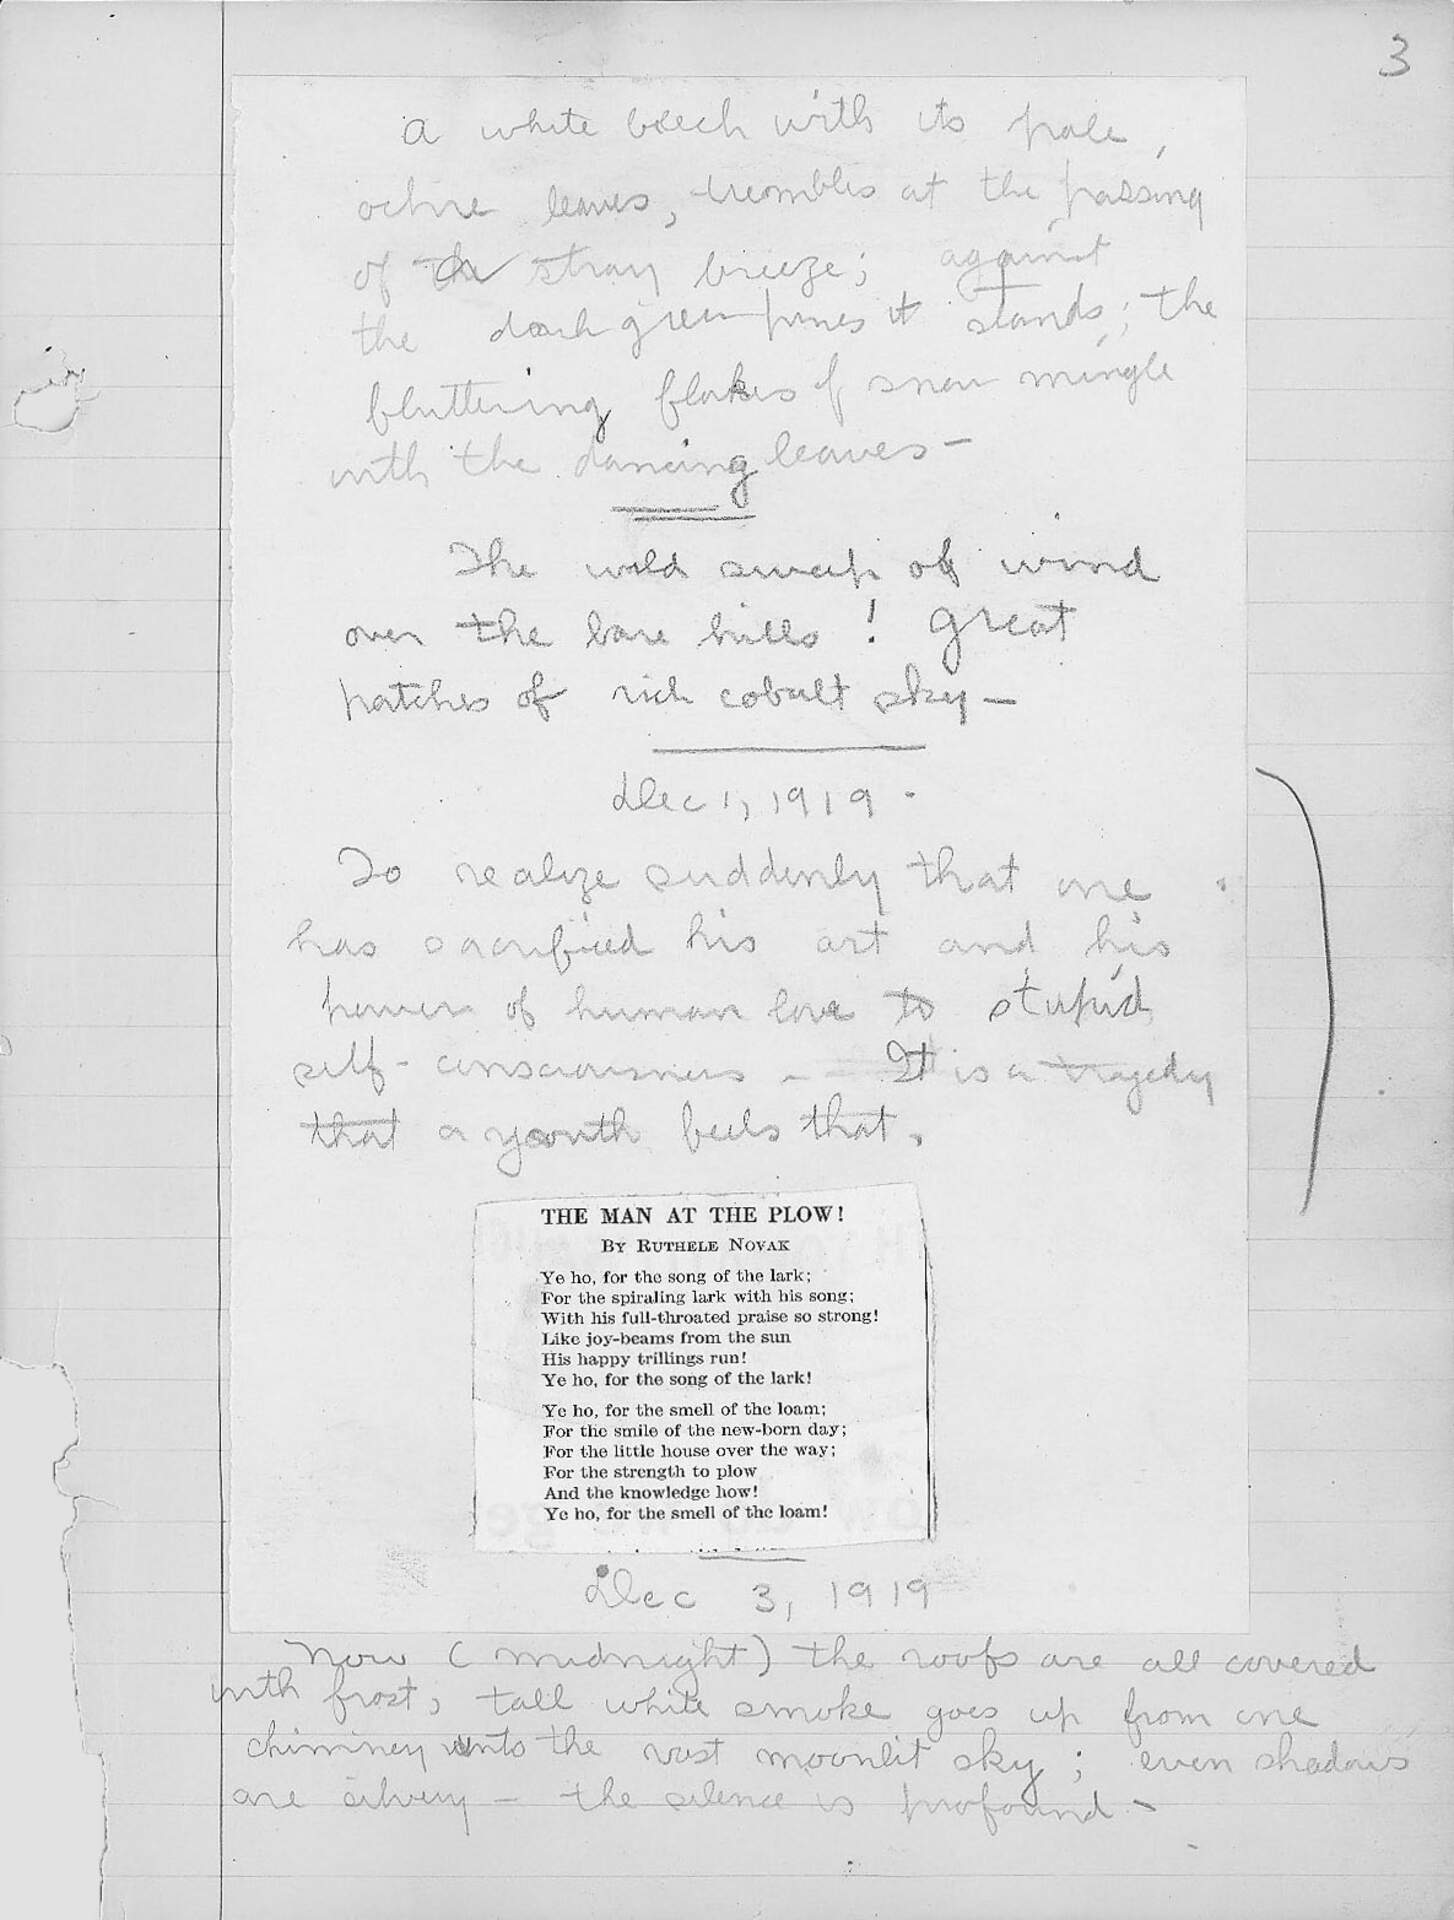 3
A white beech with its pale,
ochre leaves, trembles at the passing
of a stray breeze; against
the dark green pines it stands; the
fluttering flakes of snow mingle
with the dancing leaves —
The wild sweep of wind
over the bare hills! Great
patches of rich cobalt sky —
Dec 1, 1919.
To realize suddenly that one
has sacrificed his art and his
power of human love to stupid
self-consciousness — It is a tragedy
that a youth feels that.
THE MAN AT THE PLOW!
BY RUTHELE NOVAK
Ye ho, for the song of the lark;
For the spiraling lark with his song;
With his full-throated praise so strong!
Like joy-beams from the sun
His happy trillings run!
Ye ho, for the song of the lark!
Ye ho, for the smell of the loam;
For the smile of the new-born day;
For the little house over the way;
For the strength to plow
And the knowledge how!
Ye ho, for the smell of the loam!
Dec 3, 1919
Now (midnight) the roofs are all covered
with frost, tall white smoke goes up from one
chimney unto the vast moonlit sky; even shadows
are silvery — the silence is profound —